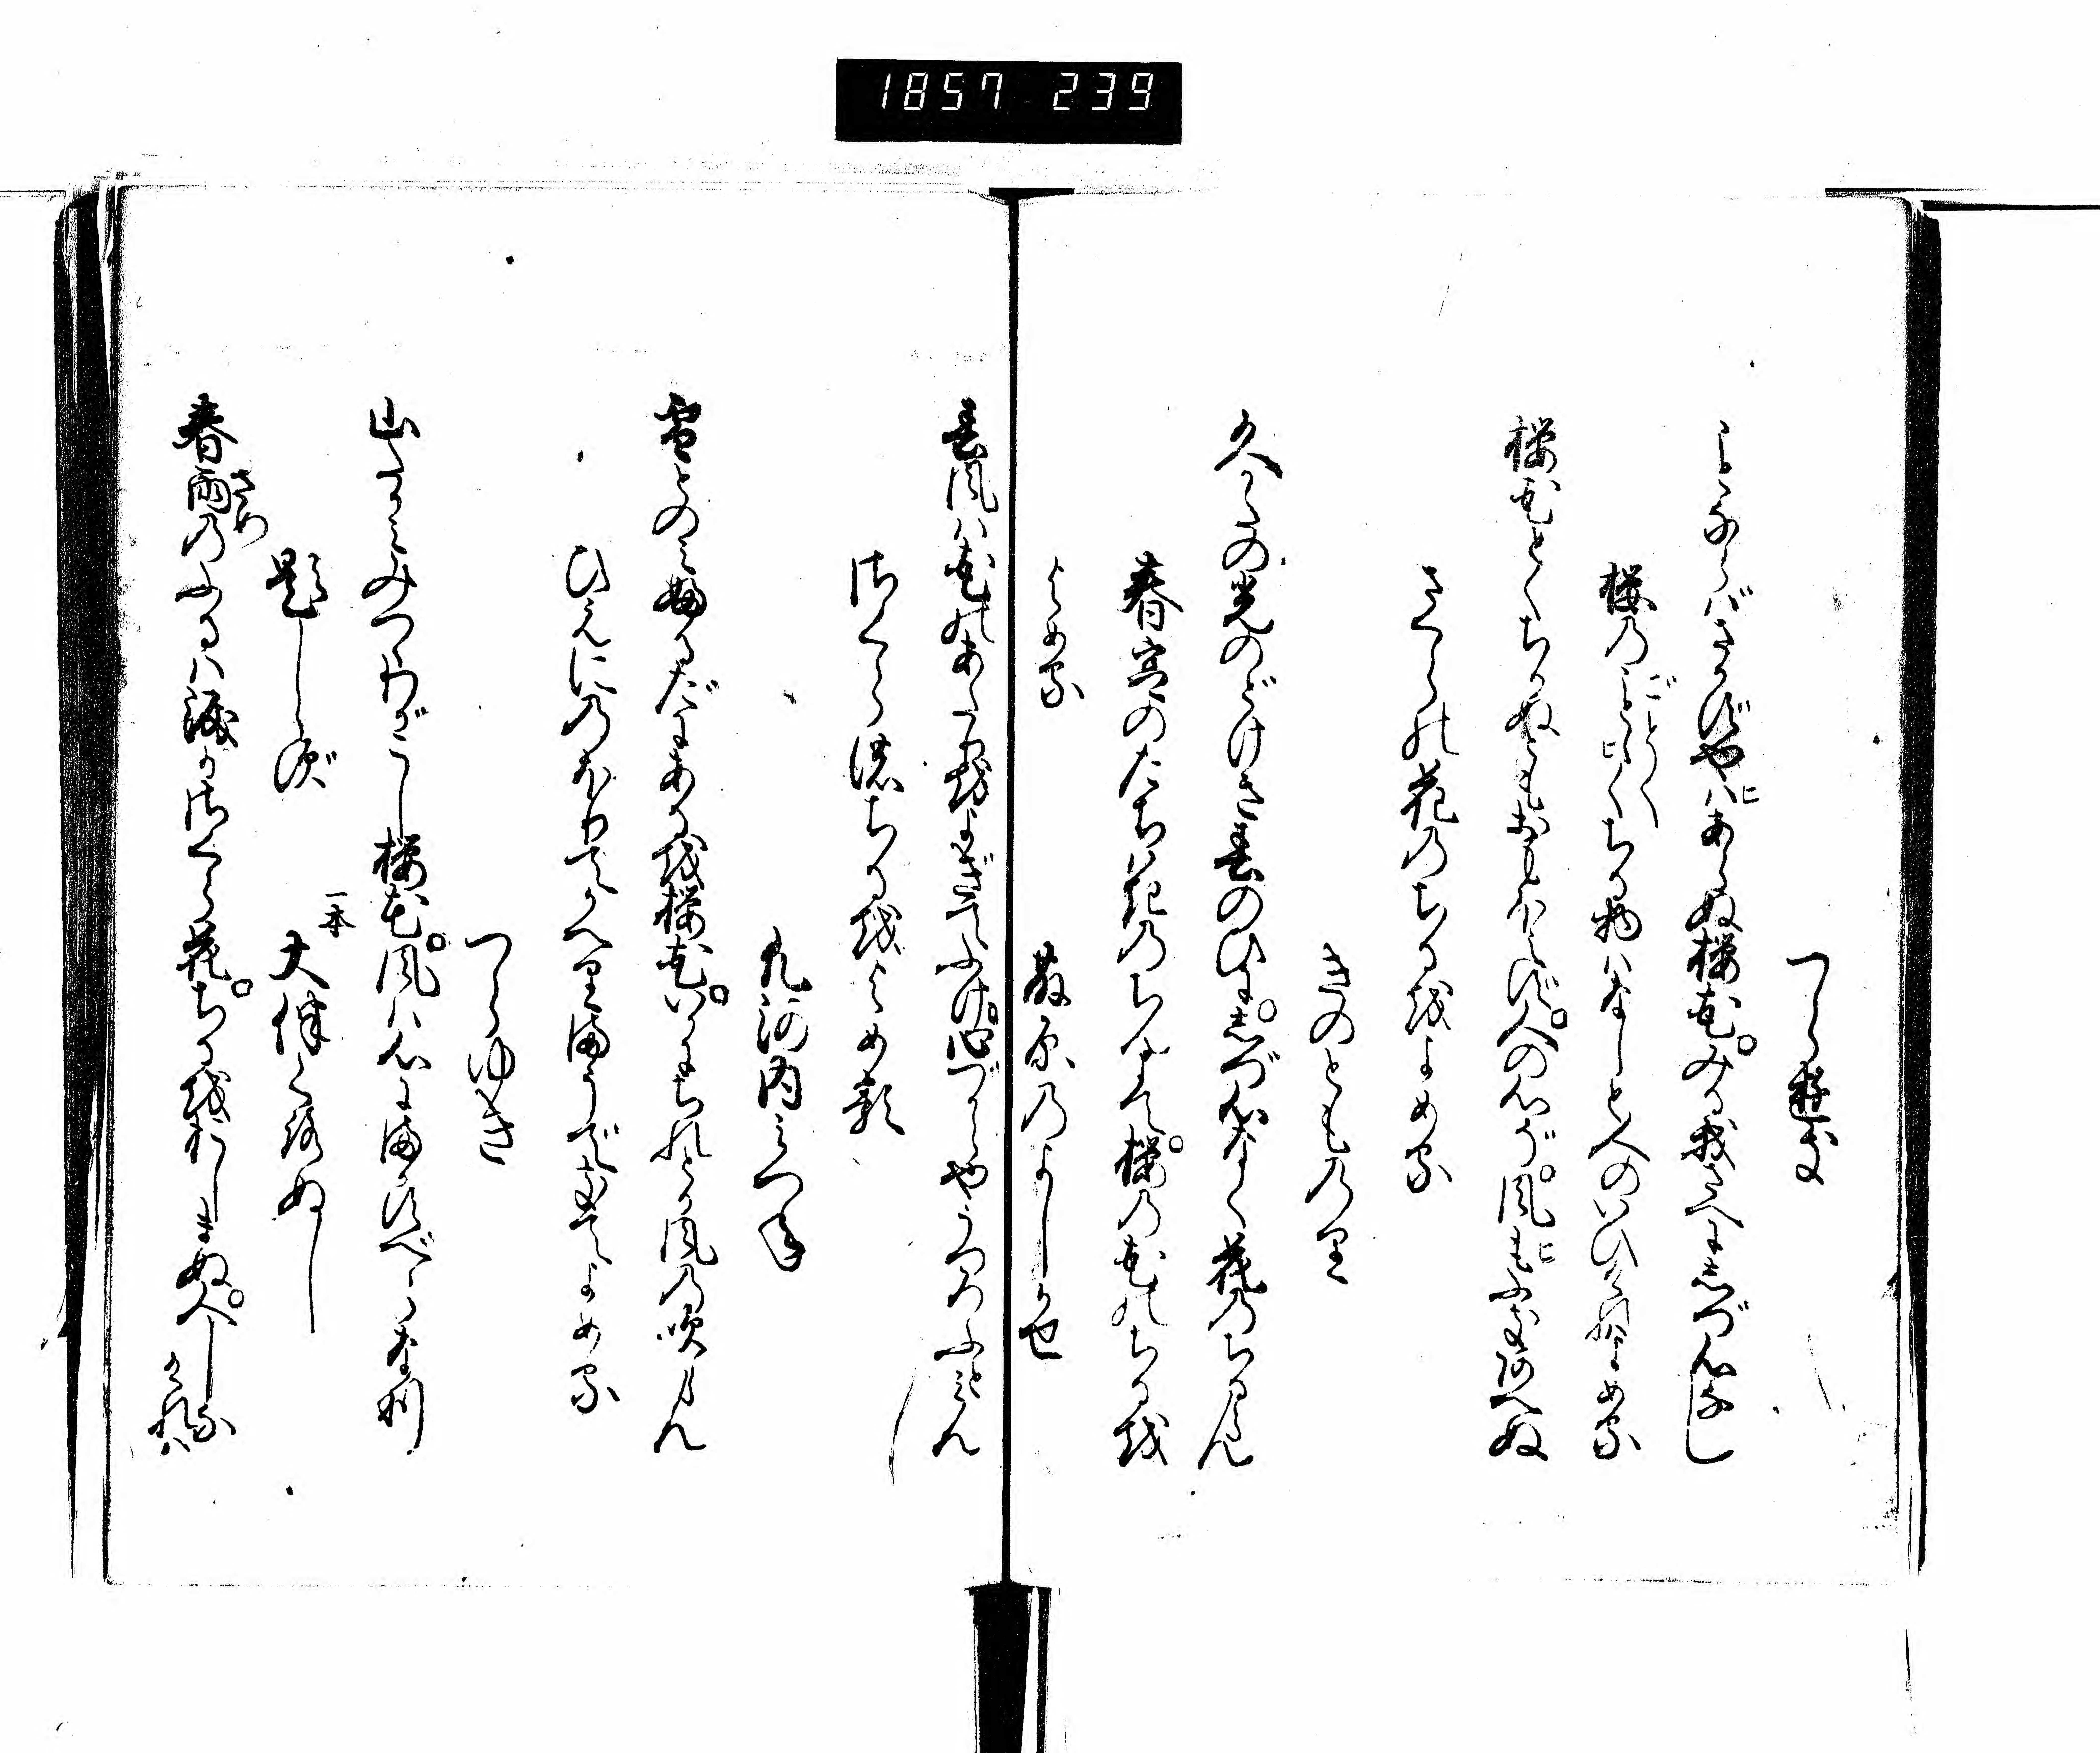 1857 239
つらゆき
ことならばさかずやはあらぬ桜花みる我さへにしづ心なし
桜のごとくちる物はなしと人のいひければよめる
桜花とくちりぬともおもほえず人の心ぞ風もふきあへぬ
さくらの花のちるをよめる
きのとものり
久かたの光のどけき春のひにしづ心なく花のちるらん
春宮のたちはきのちんにて桜の花のちるを
よめる
藤原のよしかぜ
春風は花のあたりをよぎてふけ心づからやうつろふとみん
さくらのちるをよめる
凡河内みつね
雪とのみふるだにあるを桜花いかにちれとか風の吹らん
ひえにのぼりてかへりまうできてよめる
つらゆき
山たかみみつゝわがこし桜花風は心にまかすべらなり
題しらず
一本
大伴くろぬし
春雨のふるは涙かさくら花ちるををしまぬ人しなければ
さめ